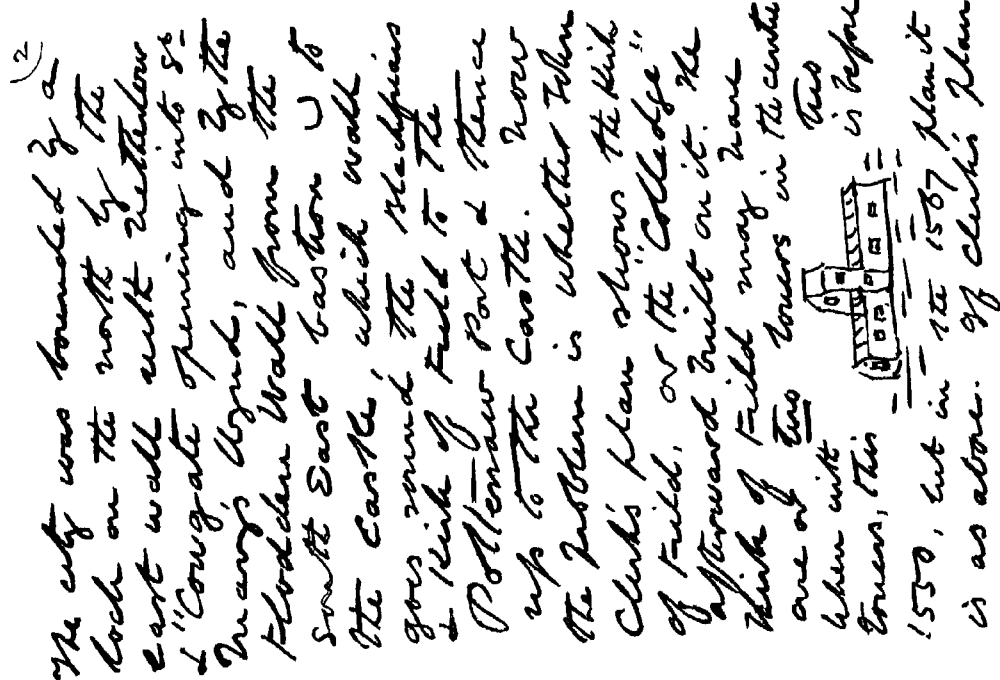 (2
The city was bounded by a
loch on the north by the
east wall with Netherbow
& "Cowgate opening into St-
Mary's Wynd, and by the
Flodden Wall from the
South East bastion to
the castle, which wall
goes round the Blackfriars
& Kirk of Field to the
Potterrow Port & thence
up to the Castle. Now
the problem is whether John
Clerk's plan shows the Kirk
of Field, or the "Colledge"
afterward built on it. The
Kirk of Field may have
one or two towers in the centre
When with two
towers, this is before
1550, but in the 1567 plan it
is as above. If Clerk's plan